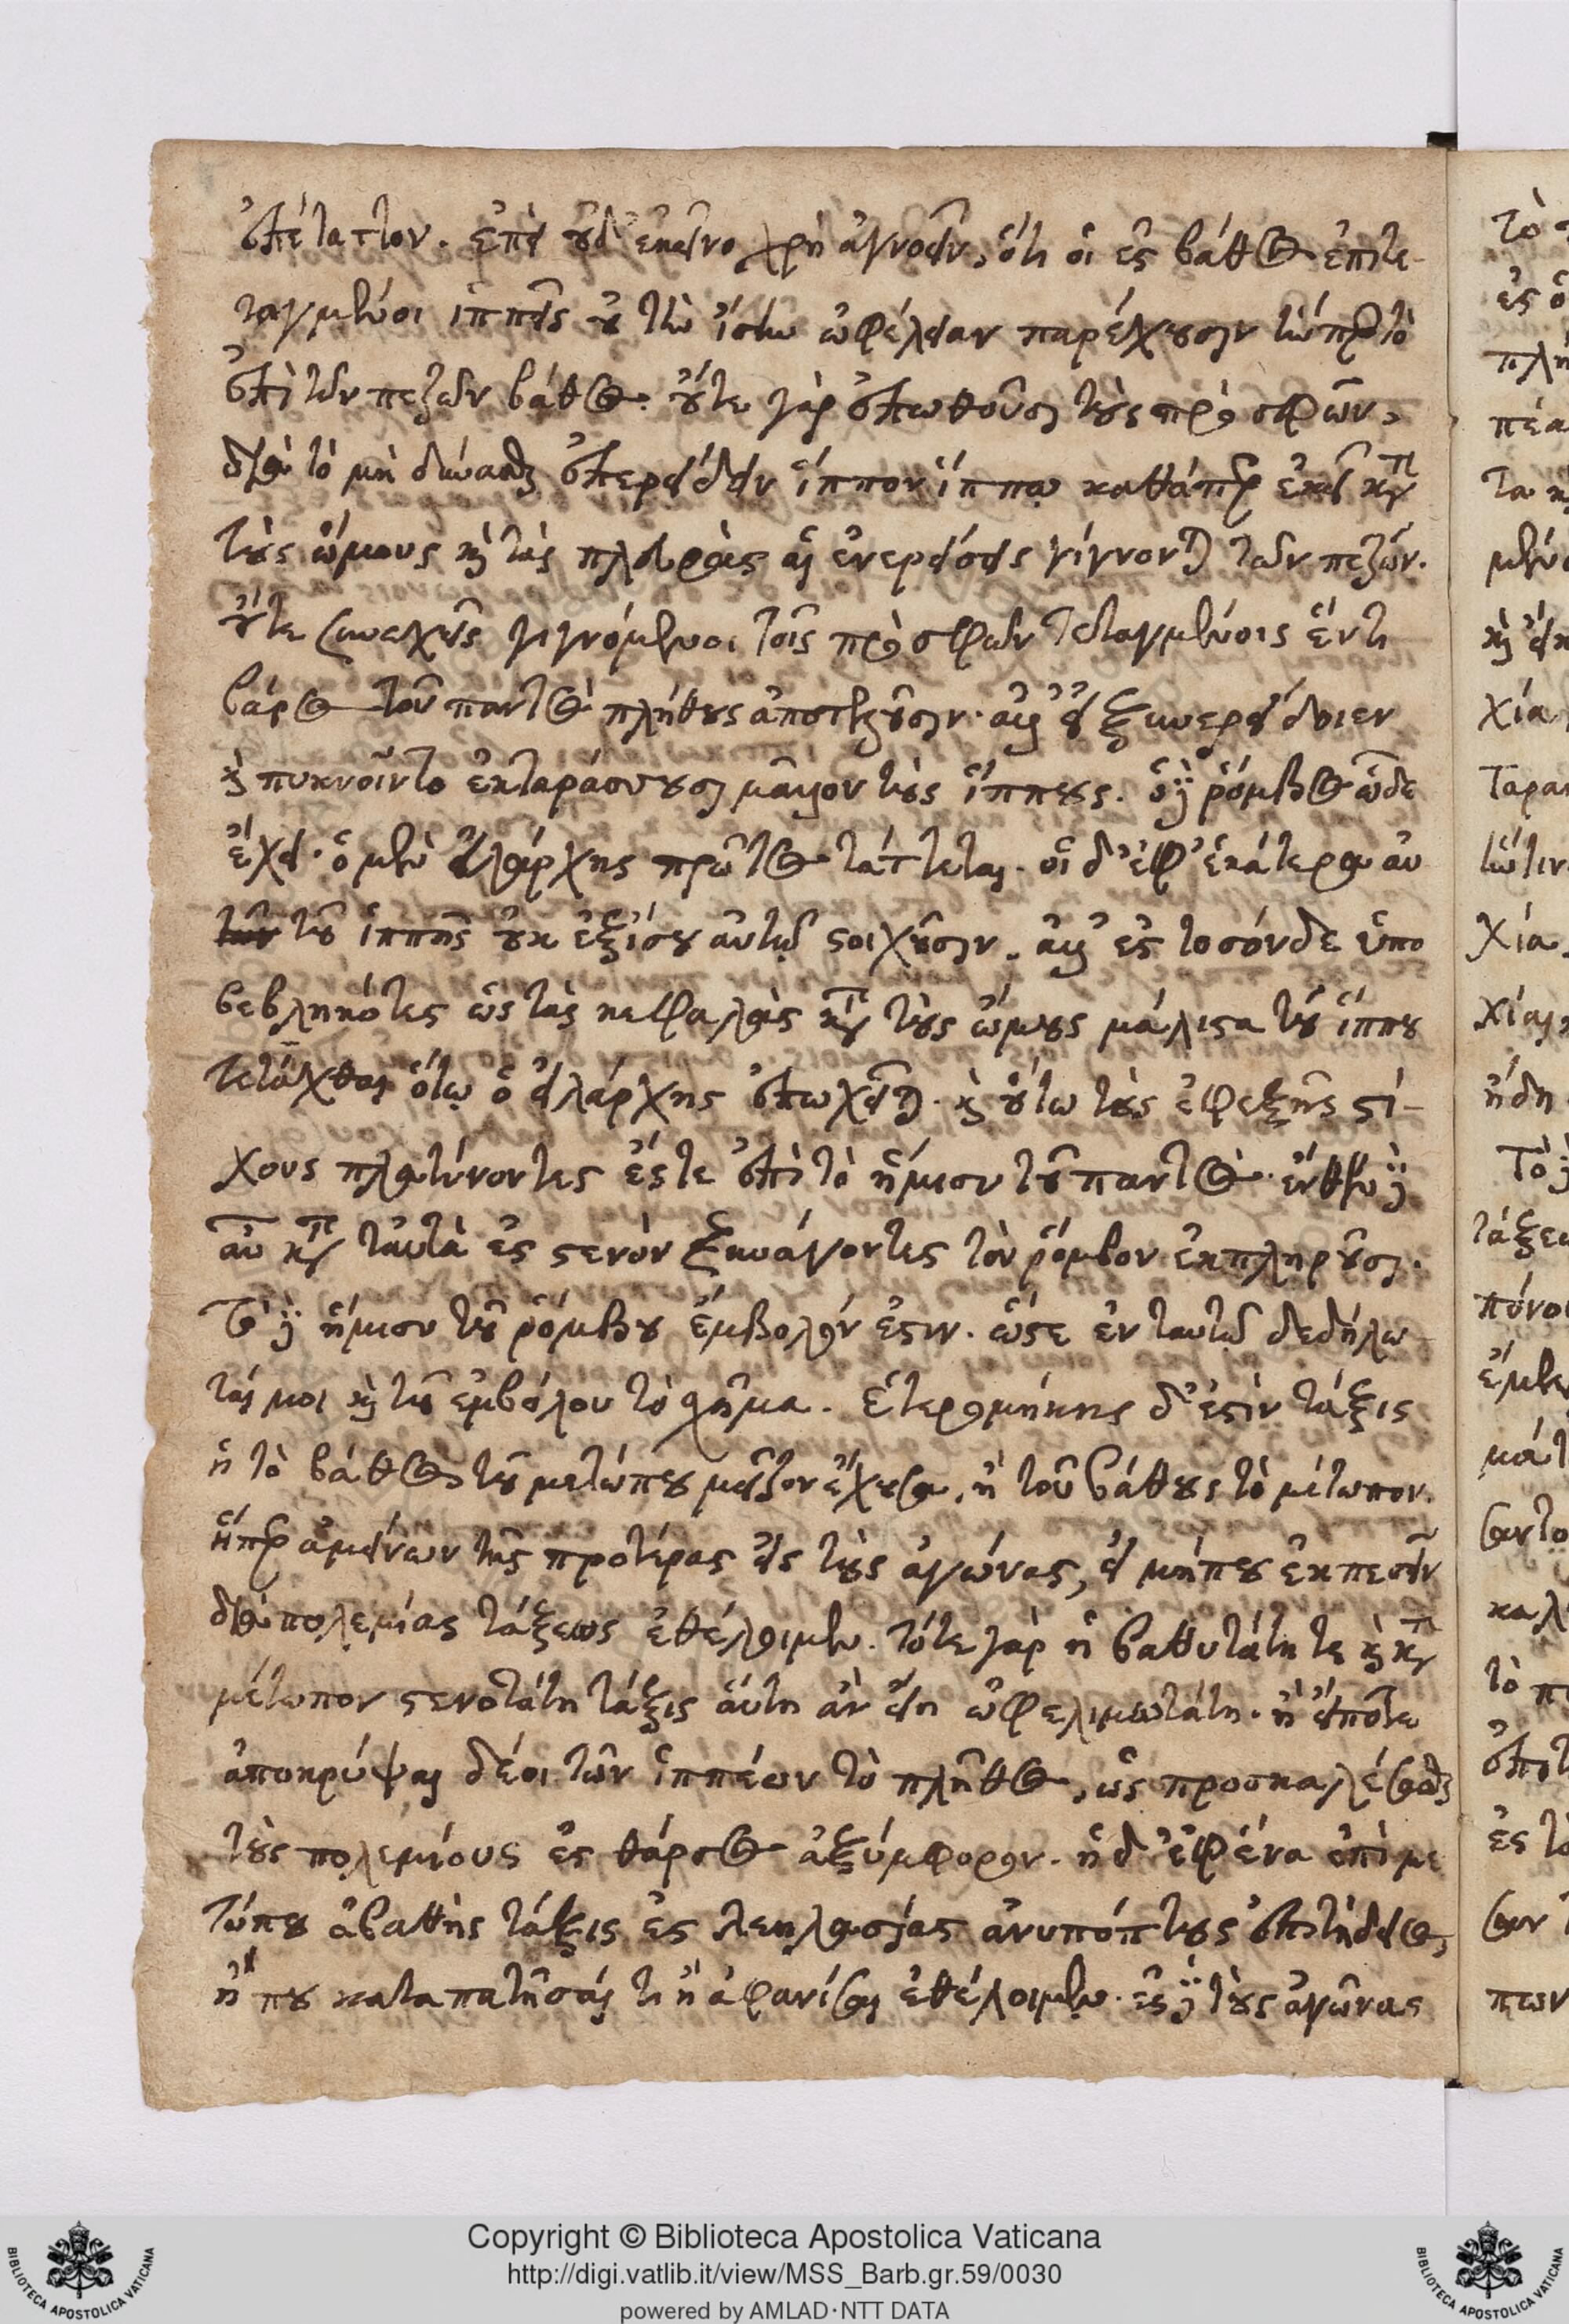 ἐπέταττον. ἐπεὶ οὐδ' ἐκεῖνο χρὴ ἀγνοεῖν, ὅτι οἱ ἐς βάθος ἐπιτε-
ταγμένοι ἱππεῖς οὐ τὴν ἴσην ὠφέλειαν παρέχουσιν τήνπερ τὸ
ἐπὶ τῶν πεζῶν βάθος. οὔτε γὰρ ἐπωθοῦσι τοὺς πρὸ σφῶν,
διὰ τὸ μὴ δύνασθαι ἐπερείδειν ἵππον ἵππῳ καθάπερ ἐκεῖ κατὰ
τοὺς ὤμους καὶ τὰς πλευρὰς αἱ ἐνερείσεις γίγνονται τῶν πεζῶν.
οὔτε συνεχεῖς γιγνόμενοι τοῖς πρὸ σφῶν τεταγμένοις ἕν τι
βάρος τοῦ παντὸς πλήθους ἀποτελοῦσιν. ἀλλ' εἰ ξυνερείδοιεν
καὶ πυκνοῖντο ἐκταράσσουσι μᾶλλον τοὺς ἵππους. ὁ δὲ ῥόμβος ὧδε
ἔχει. ὁ μὲν εἰλάρχης πρῶτος τάττεται. οἱ δ' ἐφ' ἑκάτερα αὐ
τοῦ ἱππῆς οὐκ ἐξίσου αὐτῷ στοιχοῦσιν. ἀλλ' ἐς τοσόνδε ὑπο
βεβληκότες ὡς τὰς κεφαλὰς κατὰ τοὺς ὤμους μάλιστα τοῦ ἵππου
τετάχθαι ὅτῳ ὁ εἰλάρχης ἐποχεῖται. καὶ οὕτω τοὺς ἐφεξῆς στί-
χους πλατύνοντες ἔστε ἐπὶ τὸ ἥμισυ τοῦ παντός. ἔνθεν δὲ
αὖ κατὰ ταὐτὰ ἐς στενὸν ξυνάγοντες τὸν ῥόμβον ἐκπληροῦσι.
τὸ δὲ ἥμισυ τοῦ ῥόμβου ἔμβολόν ἐστιν. ὥστε ἐν ταυτῷ δεδήλω-
ταί μοι καὶ τοῦ ἐμβόλου τὸ σχῆμα. ἑτερομήκης δ' ἐστὶν τάξις
ἢ τὸ βάθος τοῦ μετώπου μεῖζον ἔχουσα, ἢ τοῦ βάθους τὸ μέτωπον.
ἥπερ ἀμείνων τῆς προτέρας εἰς τοὺς ἀγώνας, εἰ μήπου ἐκπεσεῖν
διὰ πολεμίας τάξεως ἐθέλοιμεν. τότε γὰρ ἡ βαθυτάτη τε καὶ κατὰ
μέτωπον στενοτάτη τάξις αὕτη ἂν εἴη ὠφελιμωτάτη. ἢ εἴποτε
ἀποκρύψαι δέοι τῶν ἱππέων τὸ πλῆθος, ὡς προσκαλέσασθαι
τοὺς πολεμίους ἐς θάρσος ἀξύμφορον. ἡ δ' ἐφ' ἕνα ἐπὶ με
τώπου ἀβαθὴς τάξις ἐς λεηλασίας ἀνυπόπτους ἐπιτήδειος,
ἢ εἴ που καταπατῆσαί τι ἢ ἀφανίσαι ἐθέλοιμεν. ἐς δὲ τοὺς ἀγῶνας
Copyright © Biblioteca Apostolica Vaticana
http://digi.vatlib.it/view/MSS_Barb.gr.59/0030
powered by AMLAD·NTT DATA
BIBLIOTECA APOSTOLICA VATICANA
BIBLIOTECA APOSTOLICA VATICANA